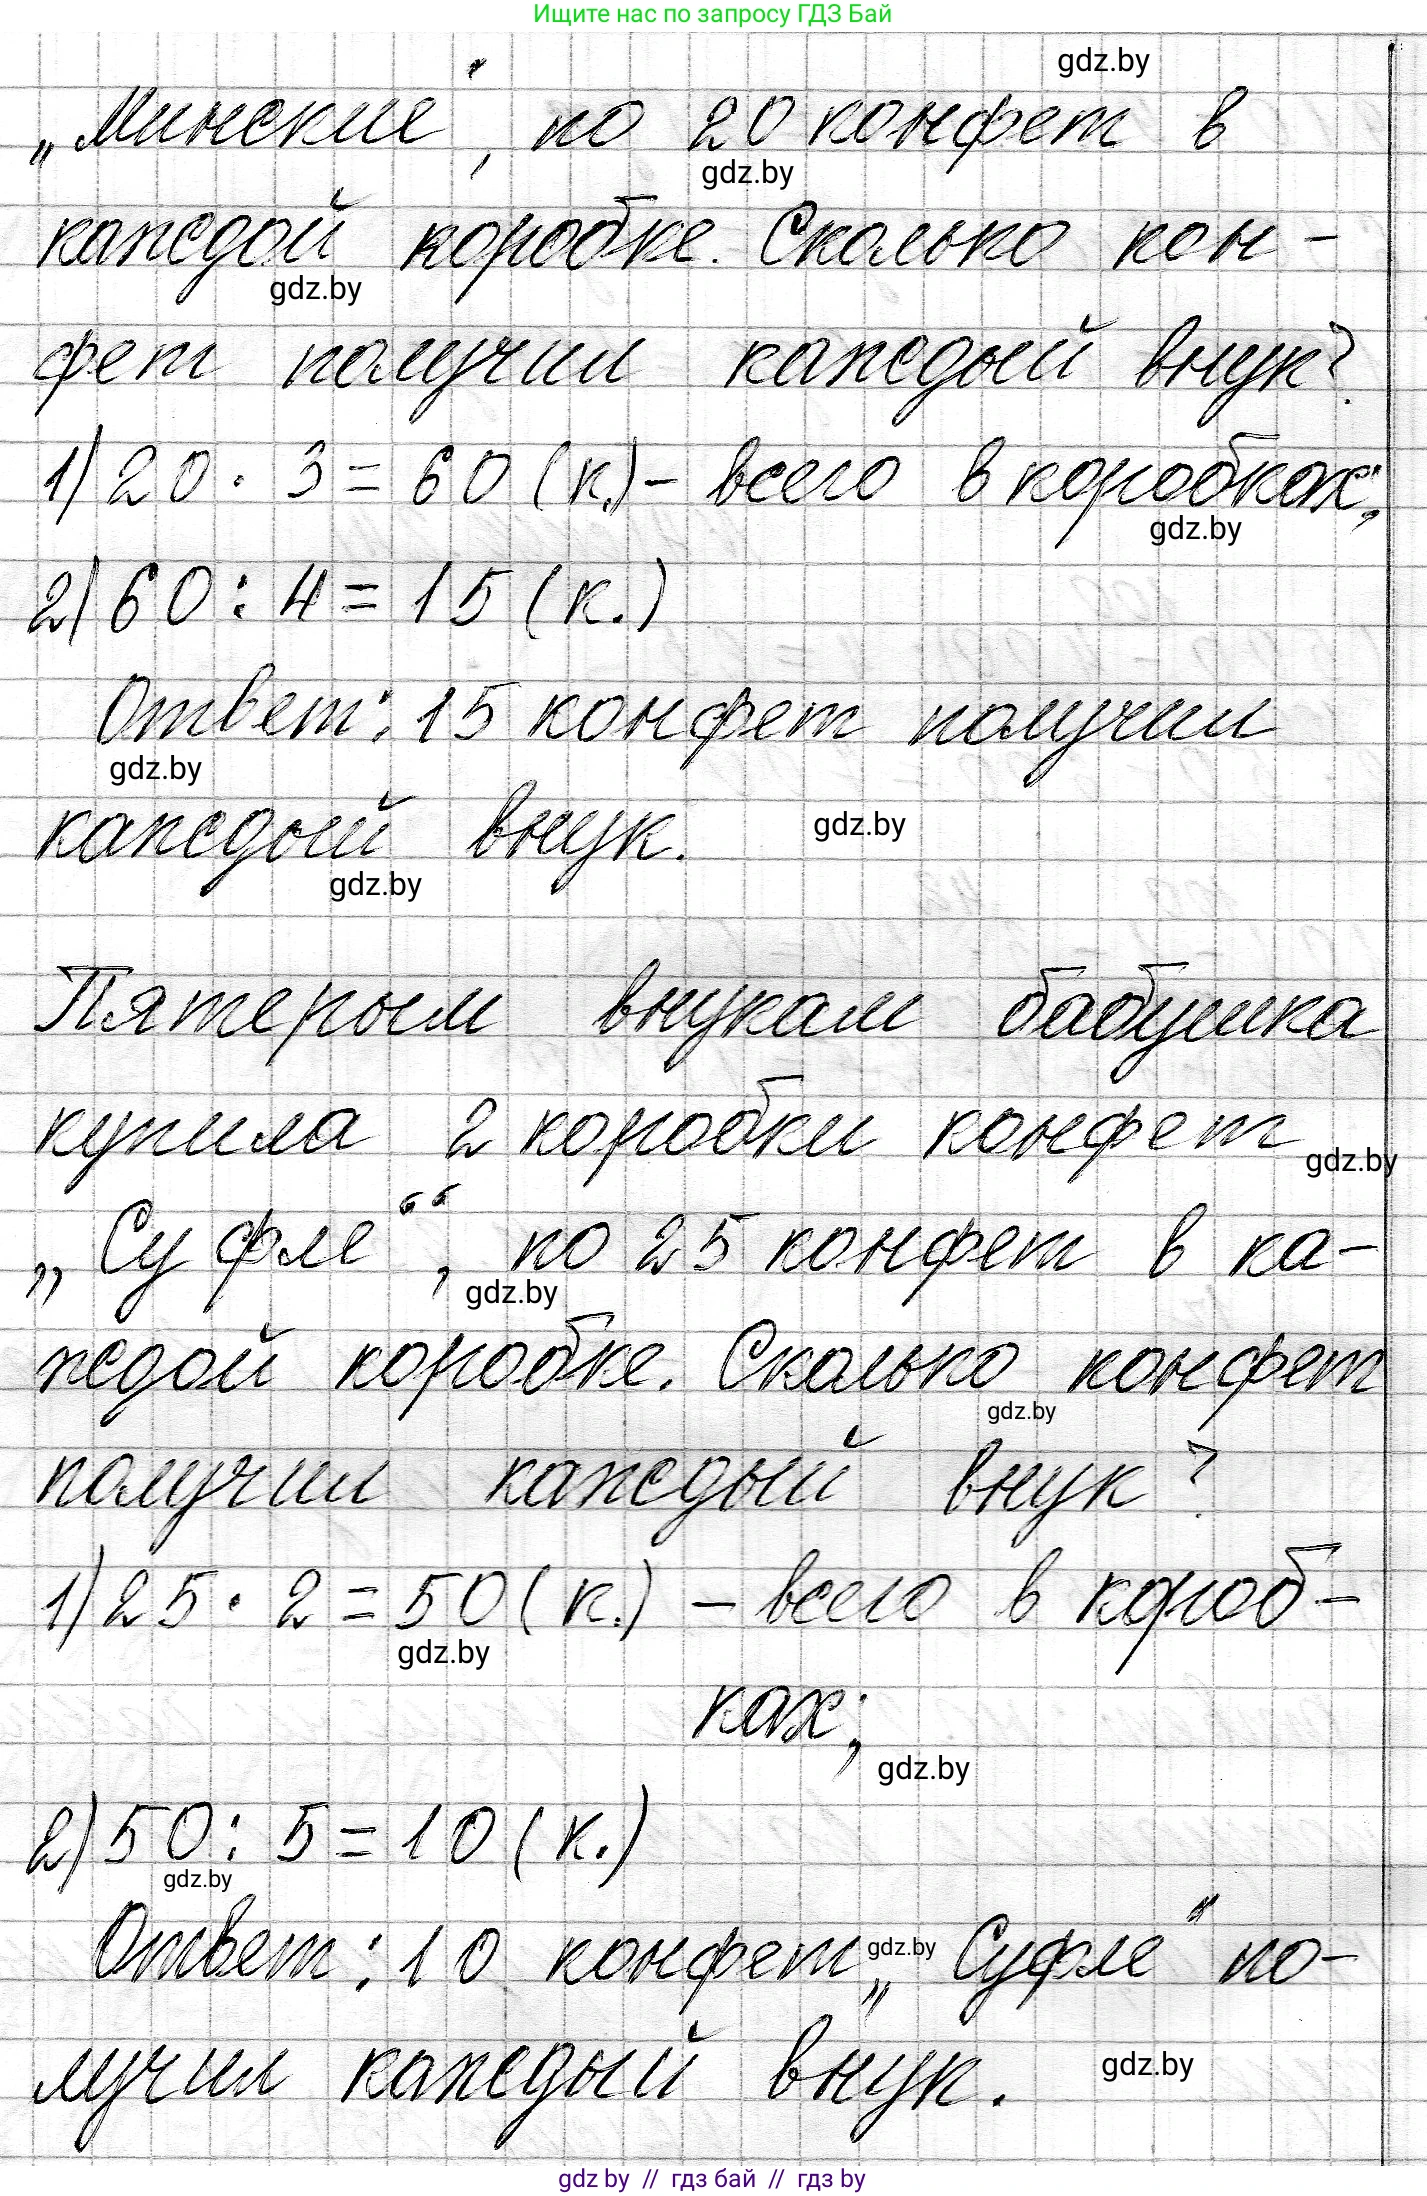 Ищите нас по запросу ГДЗ Бай
gdz.by
„Минские“, по 20 конфет в
gdz.by
каждой коробке. Сколько кон-
gdz.by
фет получил каждый внук?
1) 20 · 3 = 60 (к.) - всего в коробках;
gdz.by
2) 60 : 4 = 15 (к.)
Ответ: 15 конфет получил
gdz.by
каждый внук.
gdz.by
gdz.by
Пятерым внукам бабушка
купила 2 коробки конфет
gdz.by
„Суфле“, по 25 конфет в ка-
gdz.by
ждой коробке. Сколько конфет
gdz.by
получил каждый внук?
1) 25 · 2 = 50 (к.) - всего в короб-
gdz.by
ках;
gdz.by
2) 50 : 5 = 10 (к.)
gdz.by
Ответ: 10 конфет „Суфле“ по-
gdz.by
лучил каждый внук.
gdz.by
gdz by // гдз бай // гдз by